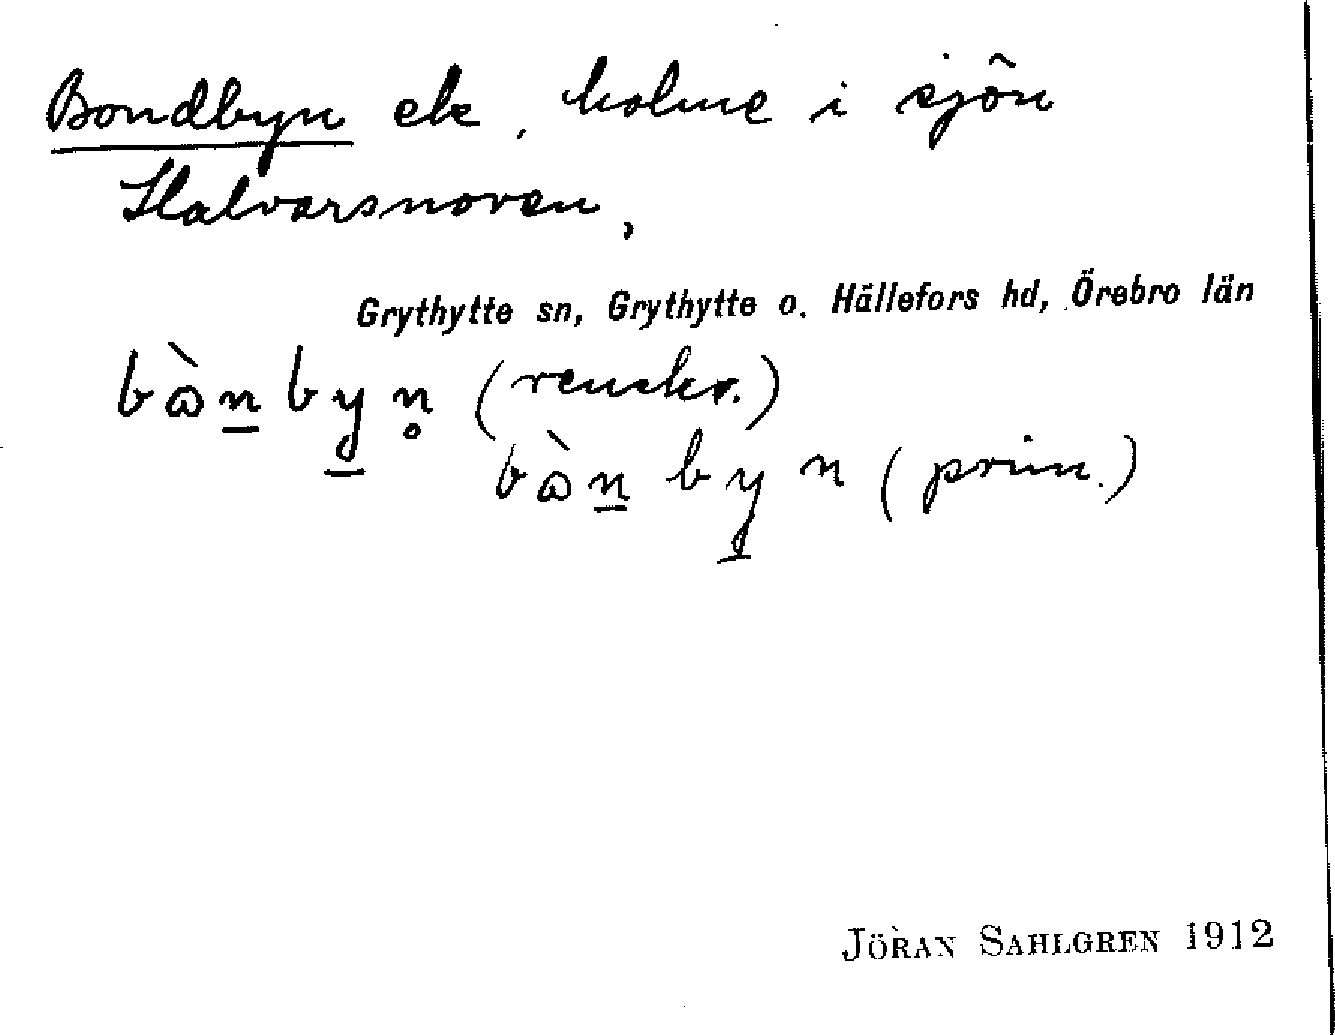 Bondbyn ek, holme i sjön
Halvarsnoren,
Grythytte sn, Grythytte o. Hällefors hd, Örebro län
bὼn̲by̲n̥ (renskr.)
bὼn̲by̲n (prim.)
JÖRAN SAHLGREN 1912